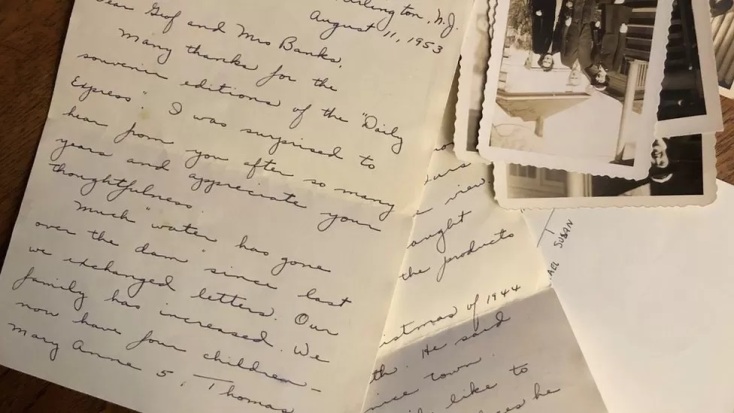 arlington, N.J.
August 11, 1953
Dear Geof and Mrs Banks,
Many thanks for the
souvenir editions of the "Daily
Express". I was surprised to
hear from you after so many
years and appreciate your
thoughtfulness.
Much "water has gone
over the dam" since last
we exchanged letters. Our
family has increased. We
now have four children –
Mary Anne 5, Thomas
view
aught
the products
istmas of 1944
th. He said
nice town.
like to
he
AEL SUSAN